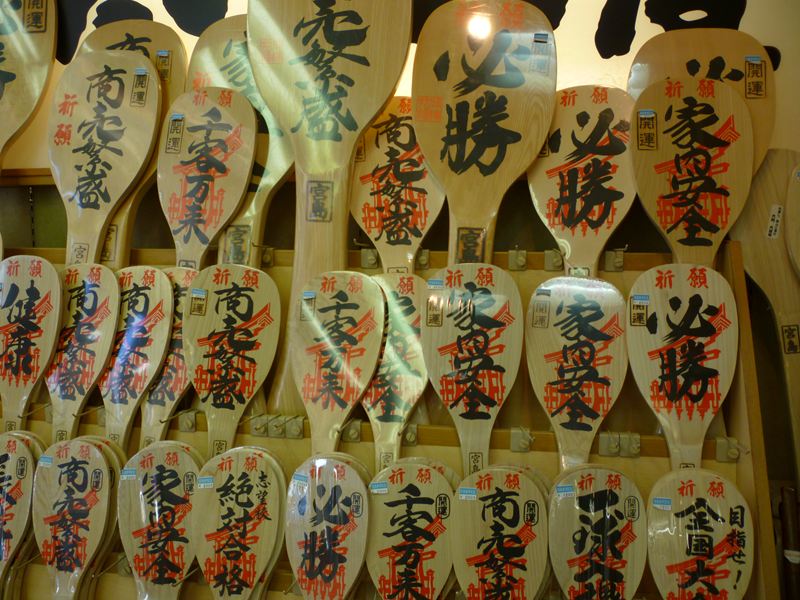 祈願
商売繁盛
開運
祈願
千客万来
開運
宮島
商売繁盛
宮島
祈願
商売繁盛
祈願
必勝
開運
宮島
祈願
必勝
開運
祈願
家内安全
開運
開運
祈願
健康
祈願
商売繁盛
祈願
商売繁盛
祈願
商売繁盛
開運
祈願
千客万来
開運
祈願
祈願
家内安全
開運
宮島
家内安全
開運
祈願
必勝
開運
祈願
商売繁盛
開運
祈願
家内安全
開運
祈願
志望校
絶対合格
祈願
必勝
開運
祈願
千客万来
開運
祈願
商売繁盛
開運
祈願
開運
祈願
目指せ!
全国大